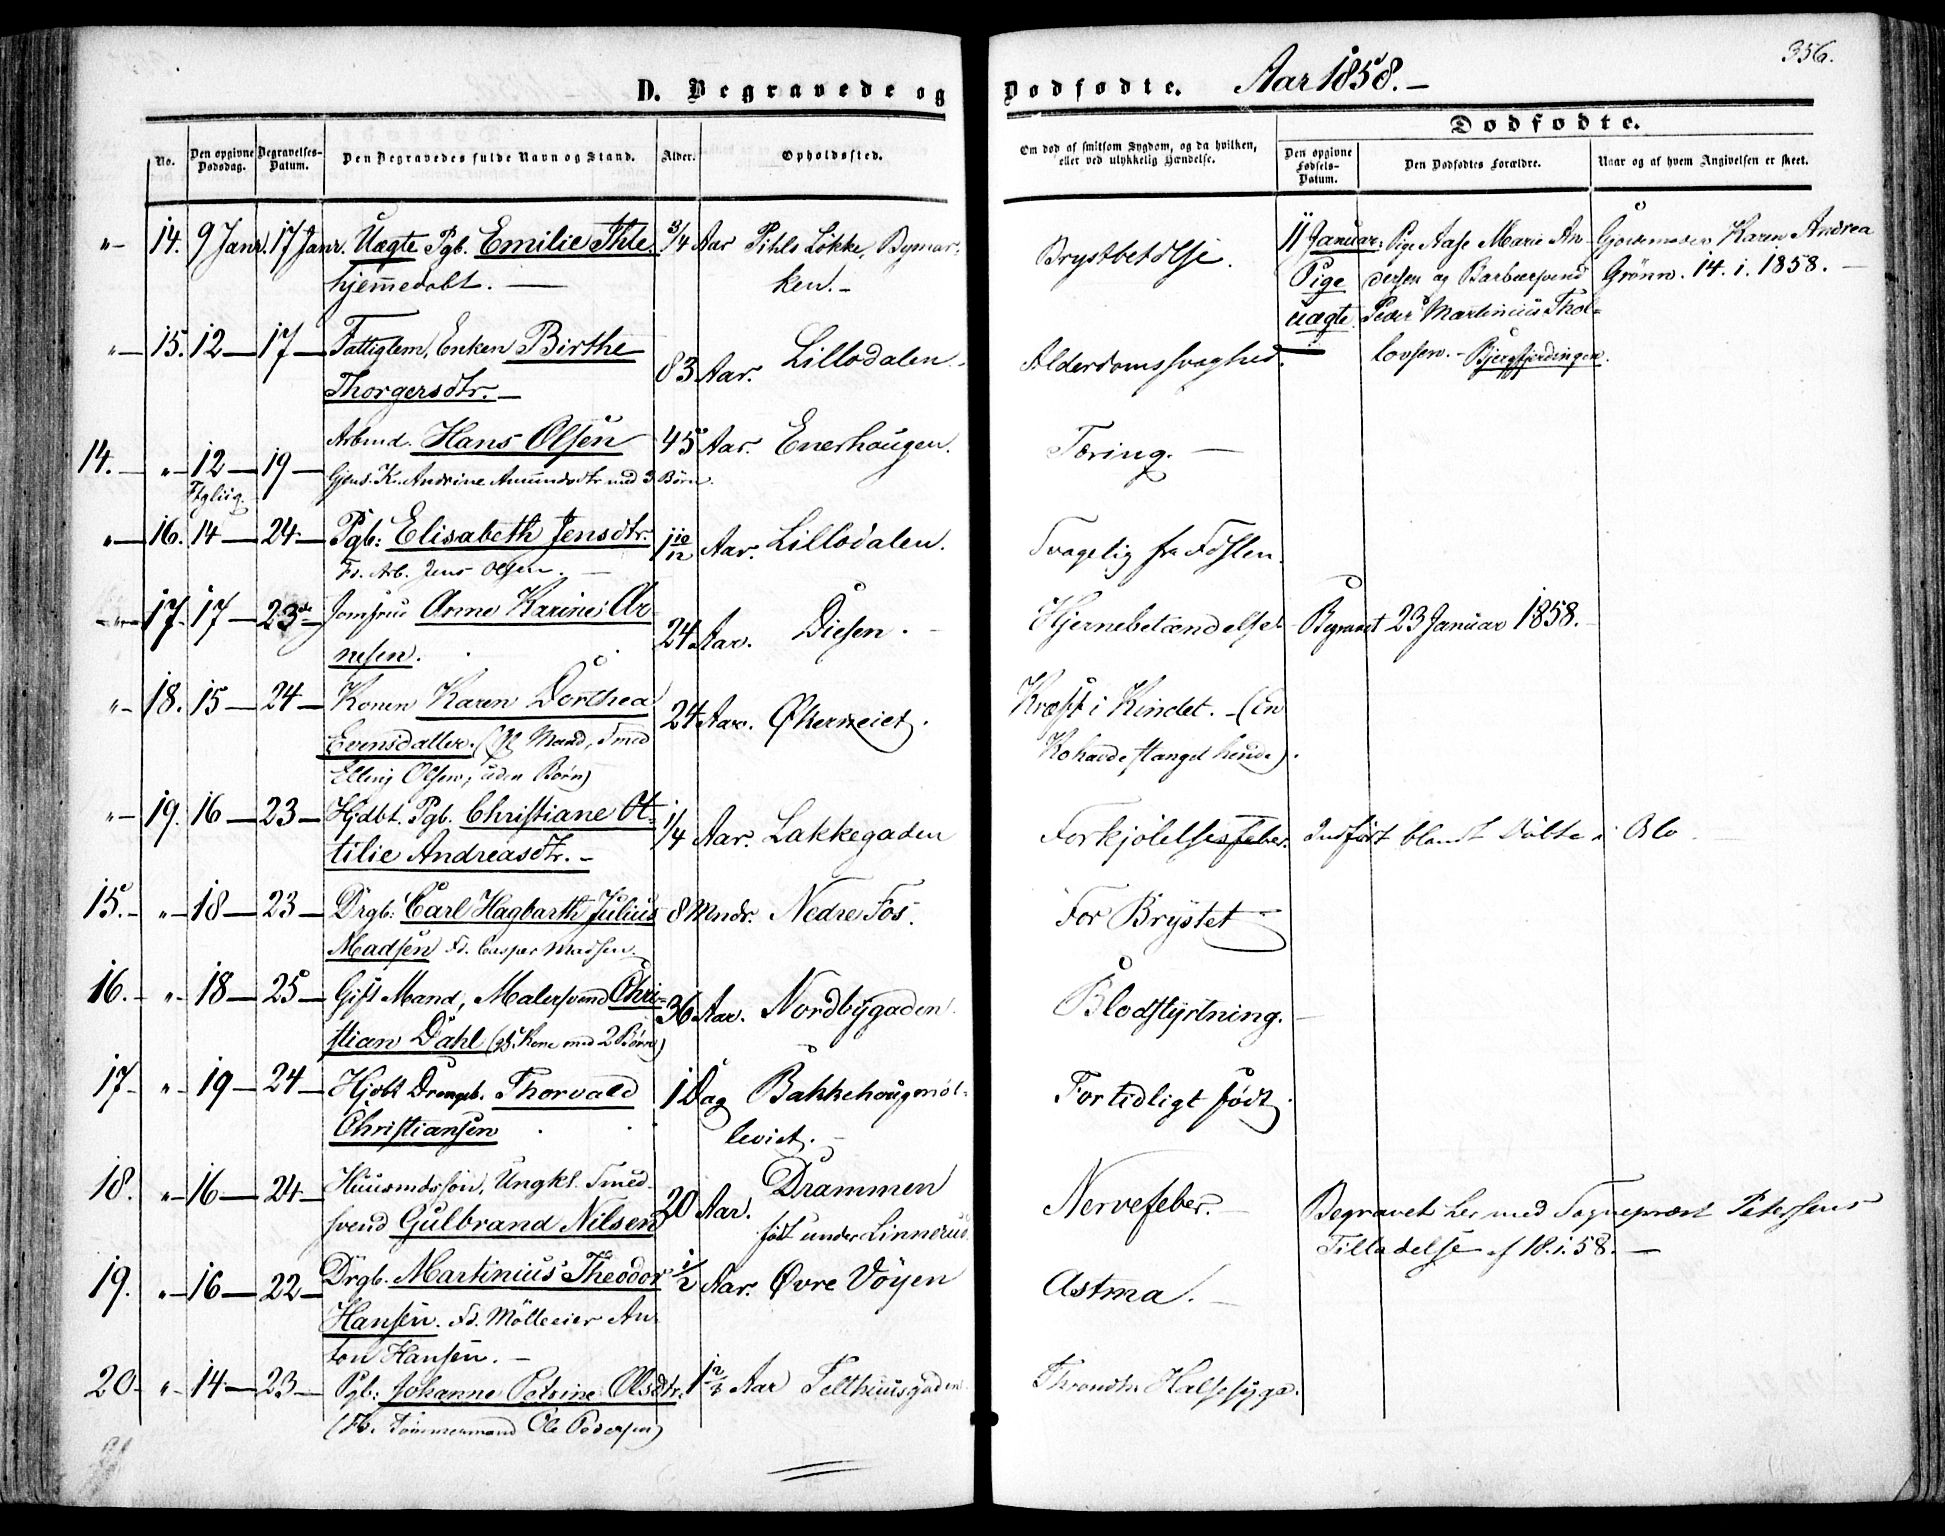 D. Begravede og Dodfodte. Aar 1858.–
356.
Dodfodte.
No.
Den opgivne Dodsdag.
Begravelses-Datum.
Den Begravedes fulde Navn og Stand.
Alder.
Opholdssted.
Om dod af smitsom Sygdom, og da hvilken, eller ved ulykkelig Hændelse.
Den opgivne Fodsels-Datum.
Den Dodfodtes Forældre.
Naar og af hvem Angivelsen er skeet.
"– 14. 9 Janr. 17 Janr. Uægte Pgb. Emilie Ihle 3/4 Aar Pihls Løkke, Bymar-
hjemmedøbt. — ken.–
Brystbetdlse.
11 Januar: Pige Aase Marie An-
Pige dersen og Barbeersvend
uægte Peder Martinius Thol-
lovsen.– Bjergfjerdingen.
Gjordemoder Karen Andrea
Grønn. 14. 1. 1858. –
"– 15. 12 – 17 – Fattiglem, Enken Birthe
Thorgersdtr. – 83 Aar. Lillodalen.
Alderdomssvaghed.
14. – "– 12 – 19 – Arbmd. Hans Olsen 45 Aar. Enerhougen.
Gjens. K. Andrine Amundsdtr med 3 Børn.
Tæring. –
"– 16. 14 – 24 – Pgb: Elisabeth Jensdtr. 1 10/12 Aar. Lillodalen.
Fd. Arb. Jens Olsen. –
Svagelig fra Fdslen.
17. 17 – 23de Jomfrue Anne Karine Ar-
nesen. 24 Aar. Diesen. –
Hjernebetændelse
Begravet 23 Januar 1858. –
"– 18. 15 – 24 – Konen Karen Dorthea
Evensdatter. Mand, Smed
Elling Olsen, uden Børn) 24 Aar. Økerneiet.
Kræft i Kindet. – (En
Ko havde stanget hende).
"– 19. 16 – 23 – Hjdbt. Pgb. Christiane Ot-
tilie Andreasdtr. – 1/4 Aar. Lakkegaden
Forkjølelsesfeber.
Indført blandt Døbte i Olo
15. – "– 18 – 23 – Drgb: Carl Hagbarth Julius
Madsen Fd. Casper Madsen. 8 Mndr. Nedre Fos.
For Brystet
16. – "– 18 – 25 – Gift Mand, Malersvend Chri-
stian Dahl (gj. Kone med 2 Børn) 36 Aar. Nordbygaden.
Blodstyrtning. –
17 – " 19 – 24 – Hjdbt Drengeb. Thorvald
Christiansen 1 Dag Bakkehougmøl-
leviet. –
For tidligt født.
18. "– 16 – 24 – Huusmdssøn, Ungkl. Smed-
svend Gulbrand Nilsen 20 Aar. Drammen
født under Linnerud.
Nervefeber. –
Begravet her med Sogneprest Petersens
Tilladelse af 18.1.58. –
19. "– 16 – 22 – Drgb. Martinius Theodor
Hansen. Fd. Mølleeier An-
ton Hansen. – 1/2 Aar. Øvre Vøyen
Astma. –
20 – "– 14 – 23 – Pgb: Johanne Petrine Olsdtr. 1 2/3 Aar Telthuusgaden
(Fd. Tømmermand Ole Pedersen)
Halssyge.